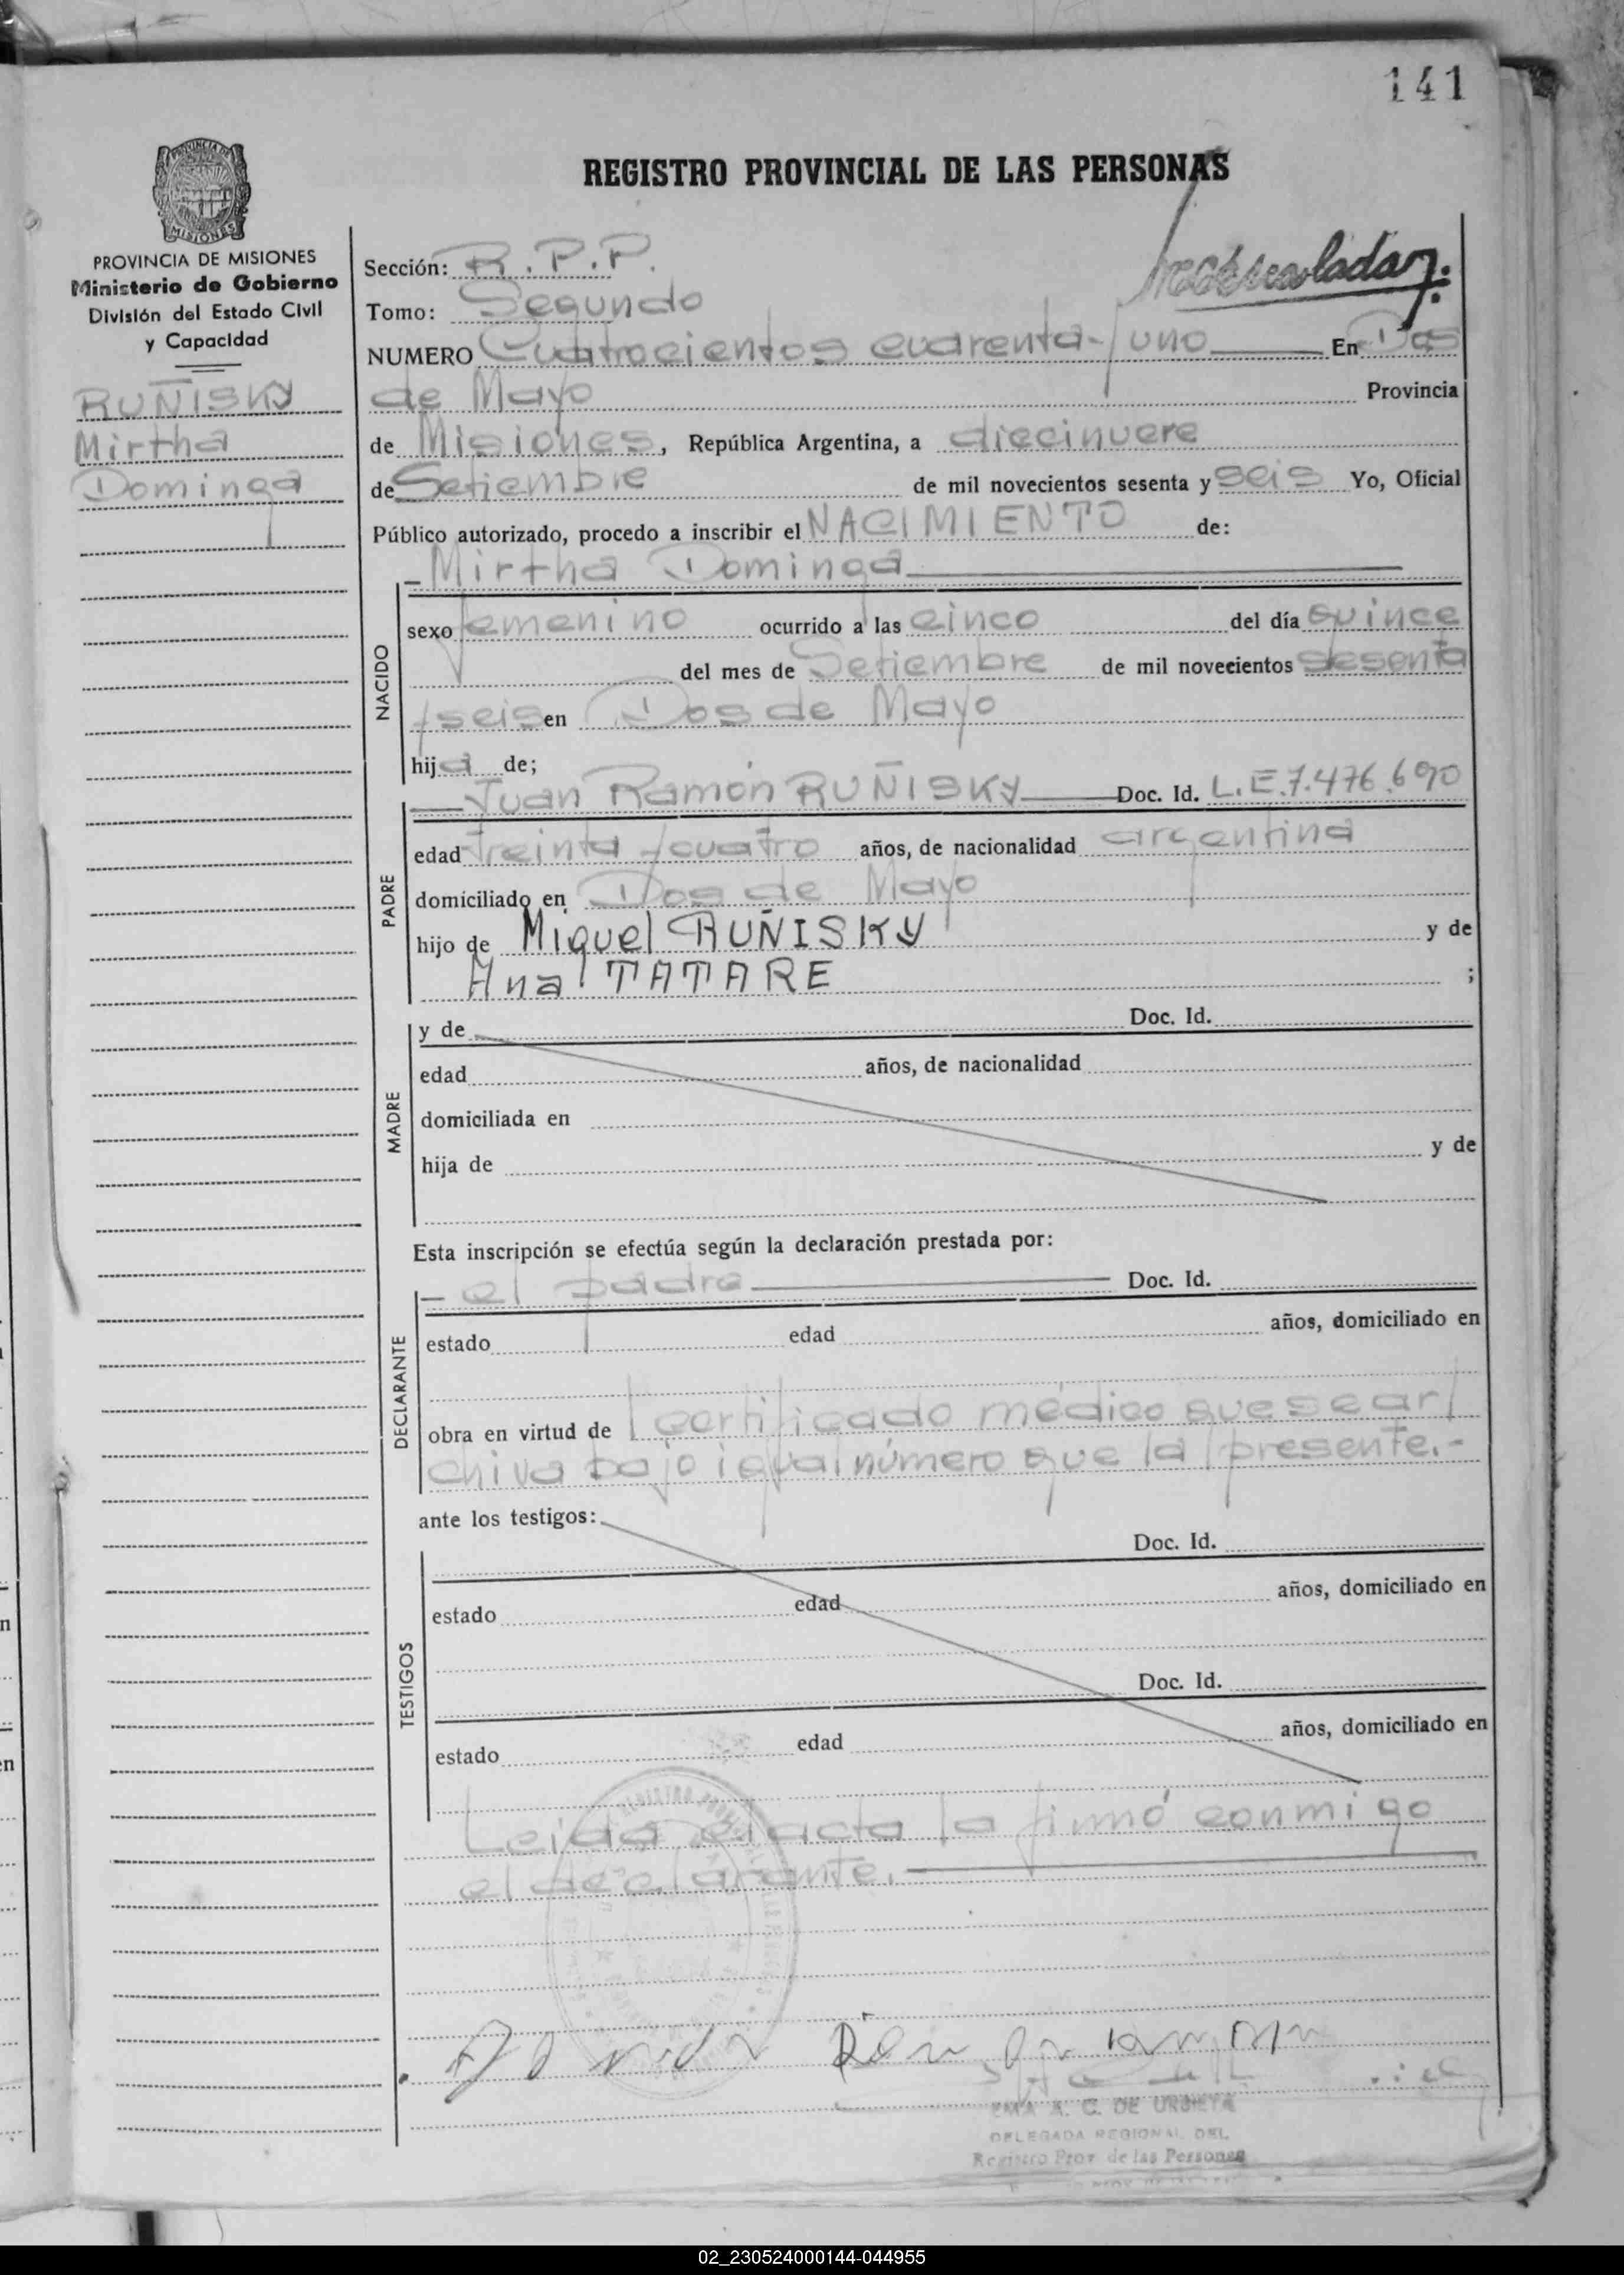 141
REGISTRO PROVINCIAL DE LAS PERSONAS
PROVINCIA DE MISIONES
MISIONES
PROVINCIA DE MISIONES
Ministerio de Gobierno
División del Estado Civil
y Capacidad
RUÑISKY
Mirtha
Dominga
Sección: R.P.P.
Tomo: Segundo
NUMERO Cuatrocientos cuarenta y uno En Dos
de Mayo Provincia
de Misiones, República Argentina, a diecinueve
de Setiembre de mil novecientos sesenta y seis Yo, Oficial
Público autorizado, procedo a inscribir el NACIMIENTO de:
Mirtha Dominga
NACIDO
sexo femenino ocurrido a las cinco del día quince
del mes de Setiembre de mil novecientos sesenta
y seis en Dos de Mayo
hija de;
PADRE
Juan Ramón RUÑISKY Doc. Id. L.E.7.476.690
edad treinta y cuatro años, de nacionalidad argentina
domiciliado en Dos de Mayo
hijo de Miguel RUÑISKY y de
Ana TATARE ;
MADRE
y de Doc. Id.
edad años, de nacionalidad
domiciliada en
hija de y de
Esta inscripción se efectúa según la declaración prestada por:
DECLARANTE
- el padre Doc. Id.
estado edad años, domiciliado en
obra en virtud de certificado médico que se ar/
chiva bajo igual número que la presente.-
ante los testigos:
TESTIGOS
Doc. Id.
estado edad años, domiciliado en
Doc. Id.
estado edad años, domiciliado en
Leída el acta la firmó conmigo
el declarante.
A. C. DE URBIETA
DELEGADA REGIONAL DEL
Registro Prov. de las Personas
02_230524000144-044955